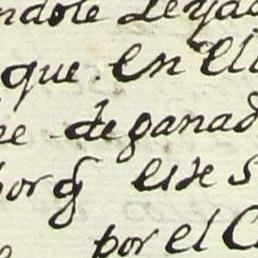 ndole deya
que en el
de ganad
por q este s
por el C